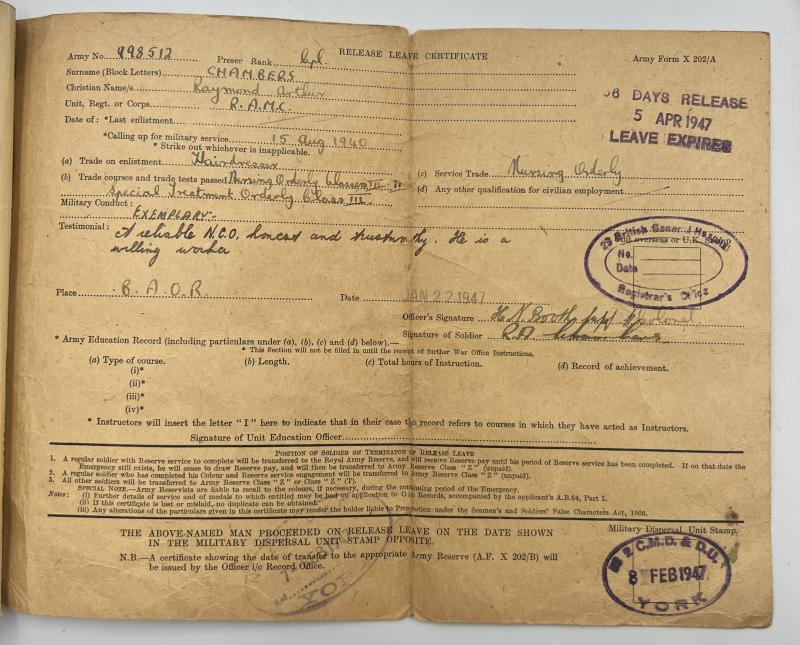 RELEASE LEAVE CERTIFICATE
Army Form X 202/A
Army No. 998512 Preser Rank Cpl.
Surname (Block Letters) CHAMBERS
Christian Name/s Raymond Arthur
Unit, Regt. or Corps R.A.M.C.
56 DAYS RELEASE
5 APR 1947
LEAVE EXPIRES
Date of: *Last enlistment
*Calling up for military service 15 Aug 1940
* Strike out whichever is inapplicable.
(a) Trade on enlistment Hairdresser
(c) Service Trade Nursing Orderly
(b) Trade courses and trade tests passed Nursing Orderly Classes III - II
Special Treatment Orderly Class III
(d) Any other qualification for civilian employment
Military Conduct: EXEMPLARY-
Testimonial: A reliable N.C.O. honest and trustworthy. He is a
willing worker
29 British General Hospital
overseas or U.K.
No.
Date
Registrar's Office
Place B.A.O.R.
Date JAN 22 1947
Officer's Signature H N Booth Colonel
Signature of Soldier R A Chambers
* Army Education Record (including particulars under (a), (b), (c) and (d) below).—
* This Section will not be filled in until the receipt of further War Office Instructions.
(a) Type of course. (b) Length. (c) Total hours of Instruction. (d) Record of achievement.
(i)*
(ii)*
(iii)*
(iv)*
* Instructors will insert the letter "I" here to indicate that in their case the record refers to courses in which they have acted as Instructors.
Signature of Unit Education Officer
POSITION OF SOLDIER ON TERMINATON OF RELEASE LEAVE
1. A regular soldier with Reserve service to complete will be transferred to the Royal Army Reserve, and will receive Reserve pay until his period of Reserve service has been completed. If on that date the
Emergency still exists, he will cease to draw Reserve pay, and will then be transferred to Army Reserve Class "Z" (unpaid).
2. A regular soldier who has completed his Colour and Reserve service engagement will be transferred to Army Reserve Class "Z" (unpaid).
3. All other soldiers will be transferred to Army Reserve Class "Z" or Class "Z" (T).
SPECIAL NOTE.—Army Reservists are liable to recall to the colours, if necessary, during the continuing period of the Emergency.
Notes: (i) Further details of service and of medals to which entitled may be had on application to O i/c Records, accompanied by the applicant's A.B.64, Part I.
(ii) If this certificate is lost or mislaid, no duplicate can be obtained.
(iii) Any alterations of the particulars given in this certificate may render the holder liable to Prosecution under the Seamen's and Soldiers' False Characters Act, 1906.
THE ABOVE-NAMED MAN PROCEEDED ON RELEASE LEAVE ON THE DATE SHOWN
IN THE MILITARY DISPERSAL UNIT STAMP OPPOSITE.
N.B.—A certificate showing the date of transfer to the appropriate Army Reserve (A.F. X 202/B) will
be issued by the Officer i/c Record Office.
Military Dispersal Unit Stamp.
2 C.M.D. & D.U.
8 FEB 1947
YORK